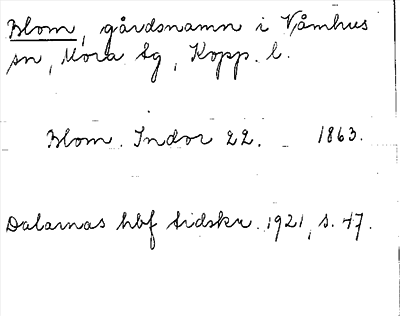 Blom, gårdsnamn i Våmhus
sn, Mora tg, Kopp. l.
Blom. Indor 22. 1863.
Dalarnas hbf tidskr. 1921, s. 47.